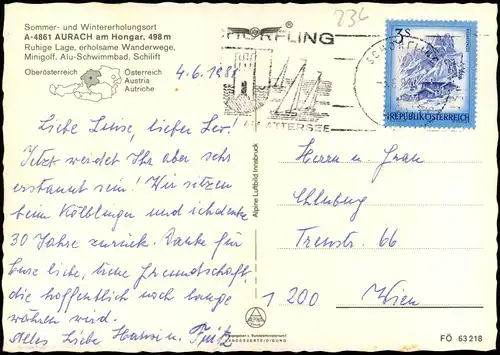 Sommer- und Wintererholungsort
A-4861 AURACH am Hongar, 498 m
Ruhige Lage, erholsame Wanderwege,
Minigolf, Alu-Schwimmbad, Schilift
Oberösterreich
Österreich
Austria
Autriche
4.6.1988
234
SCHÖRFLING
AM ATTERSEE
SCHÖRFLING
3 S
REPUBLIK ÖSTERREICH
Liebe Luise, lieber Leo!
Jetzt werdet Ihr aber sehr
erstaunt sein! Wir sitzen
beim Kölblinger und ich denke
30 Jahre zurück. Danke für
Eure liebe, treue Freundschaft,
die hoffentlich noch lange
währen wird.
Alles Liebe Hansi u. Fritz
Alpine Luftbild Innsbruck
Herrn u. Frau
Treustr. 66
1200 Wien
LANDESVERTEIDIGUNG
FÖ 63218